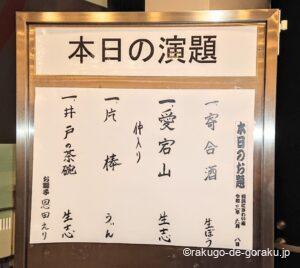 本日の演題
本日のお題
一、寄合酒 生ぼう
一、愛宕山 生志
仲入り
一、片棒 う゛ん
一、井戸の茶碗 生志
お囃子 恩田えり
©rakugo-de-goraku.jp